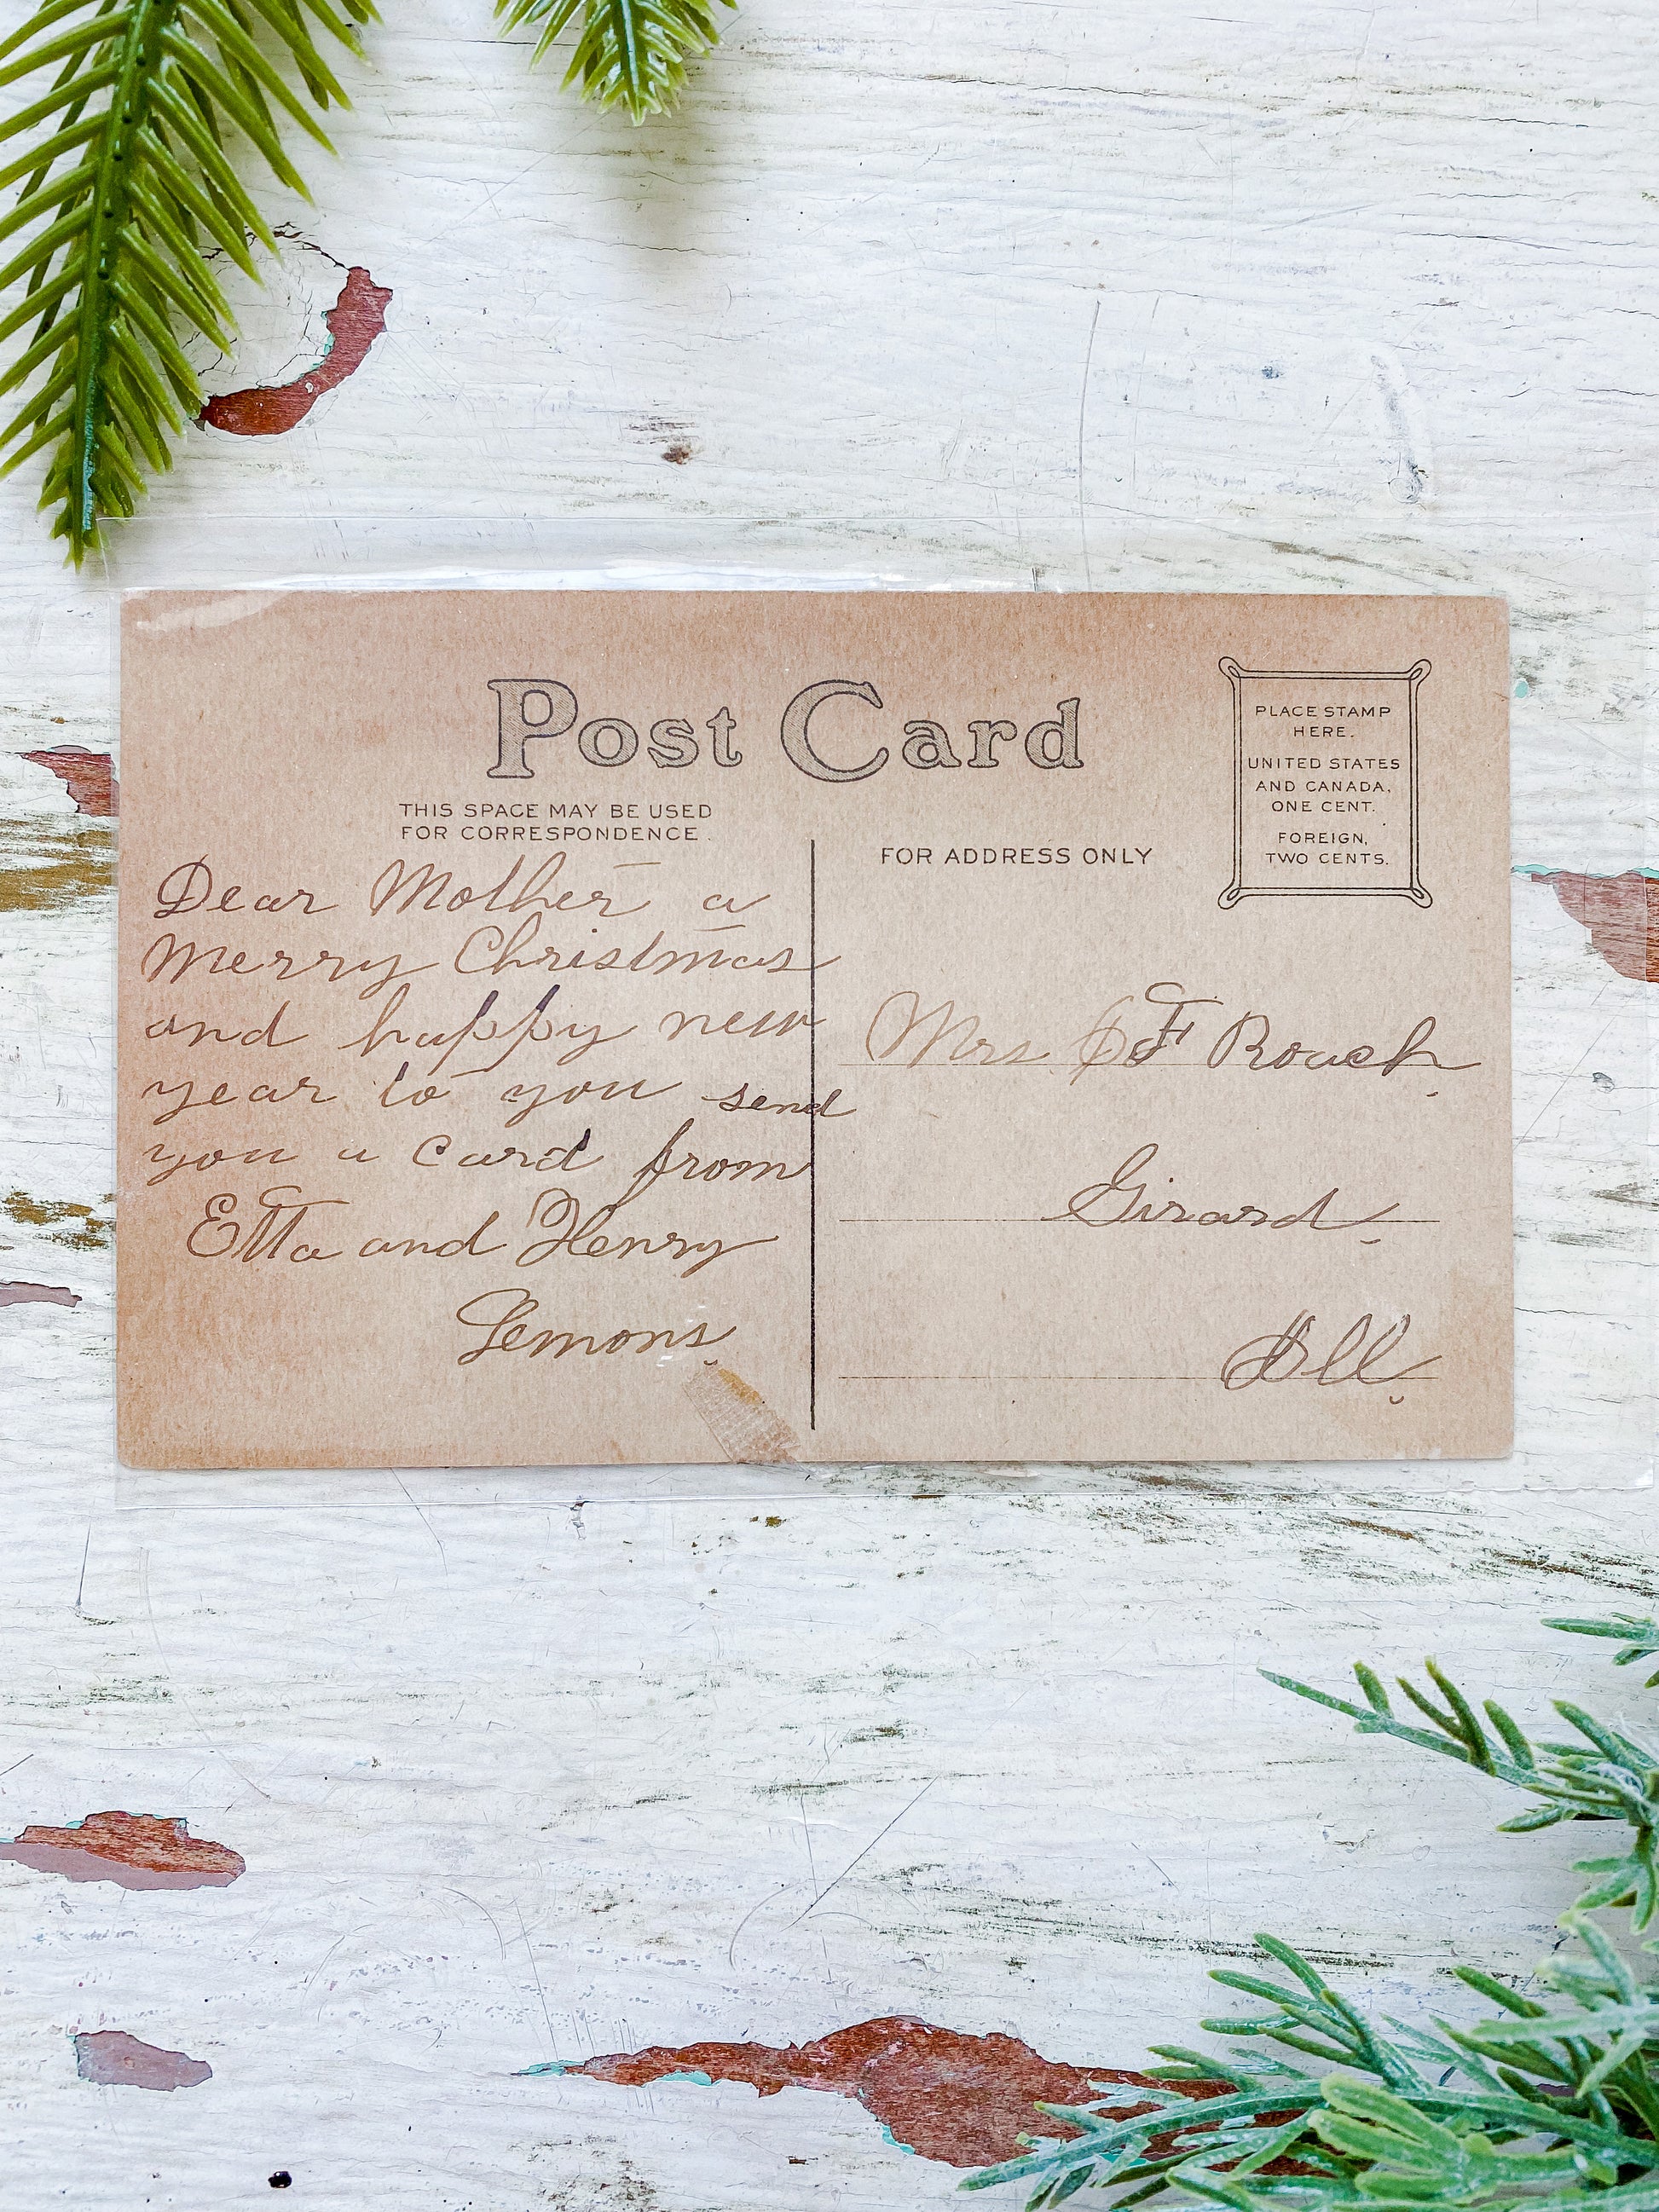 Post Card
THIS SPACE MAY BE USED
FOR CORRESPONDENCE.
FOR ADDRESS ONLY
PLACE STAMP
HERE.
UNITED STATES
AND CANADA,
ONE CENT.
FOREIGN,
TWO CENTS.
Dear Mother a
Merry Christmas
and happy new
year to you send
you a card from
Etta and Henry
Lemons.
Mrs F Rouch.
Girard.
Ill.